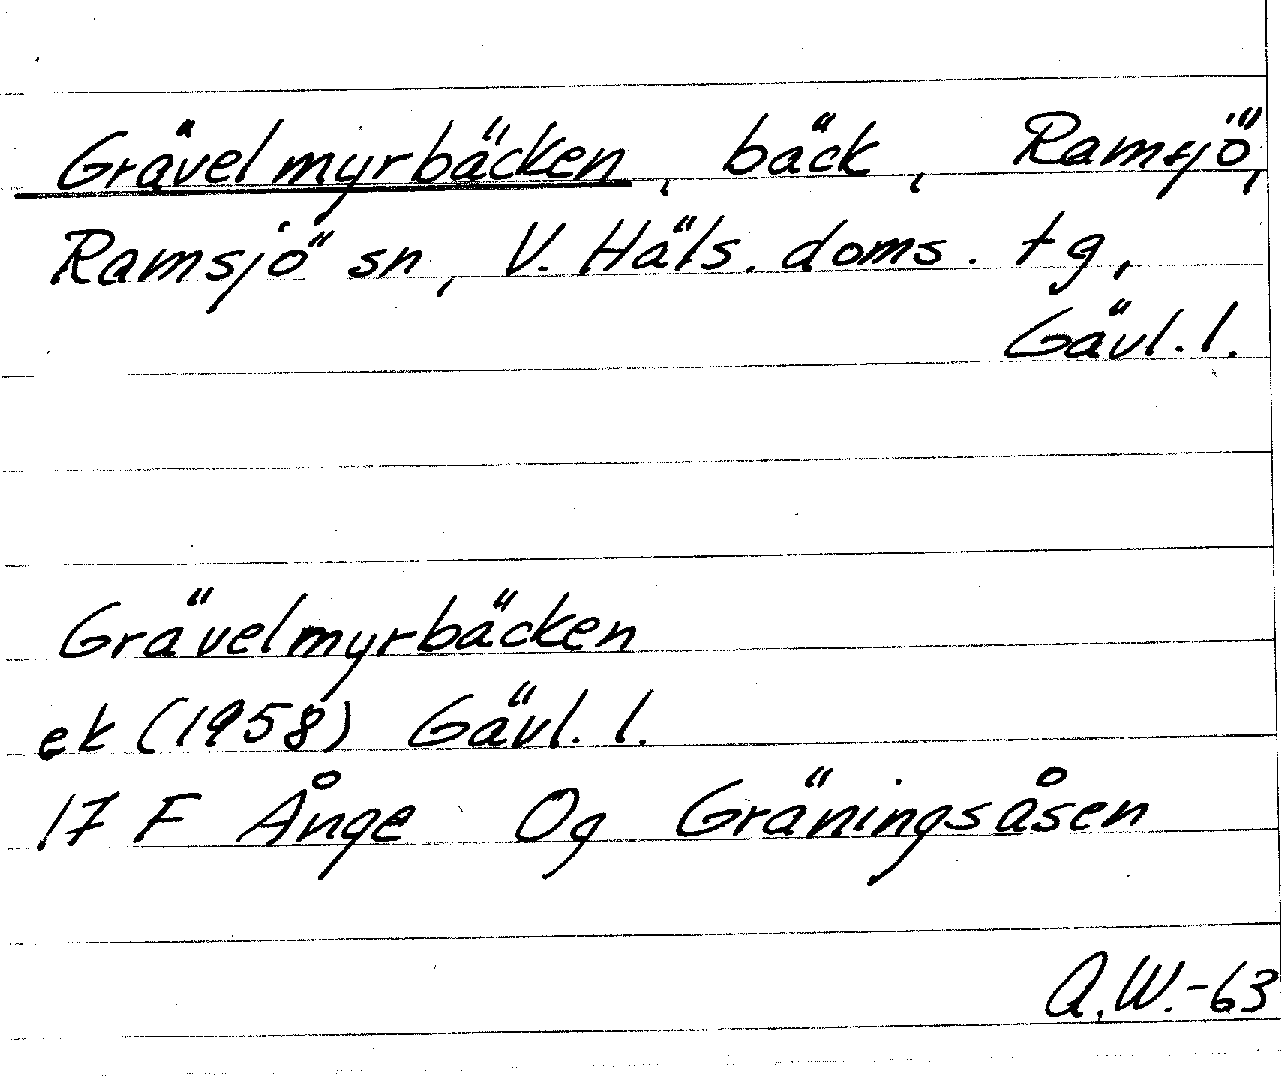 Grävelmyrbäcken, bäck, Ramsjö,
Ramsjö sn, V. Häls. doms. tg,
Gävl. l.
Grävelmyrbäcken
ek (1958) Gävl. l.
17 F Ånge Og Gräningsåsen
A.W.-63